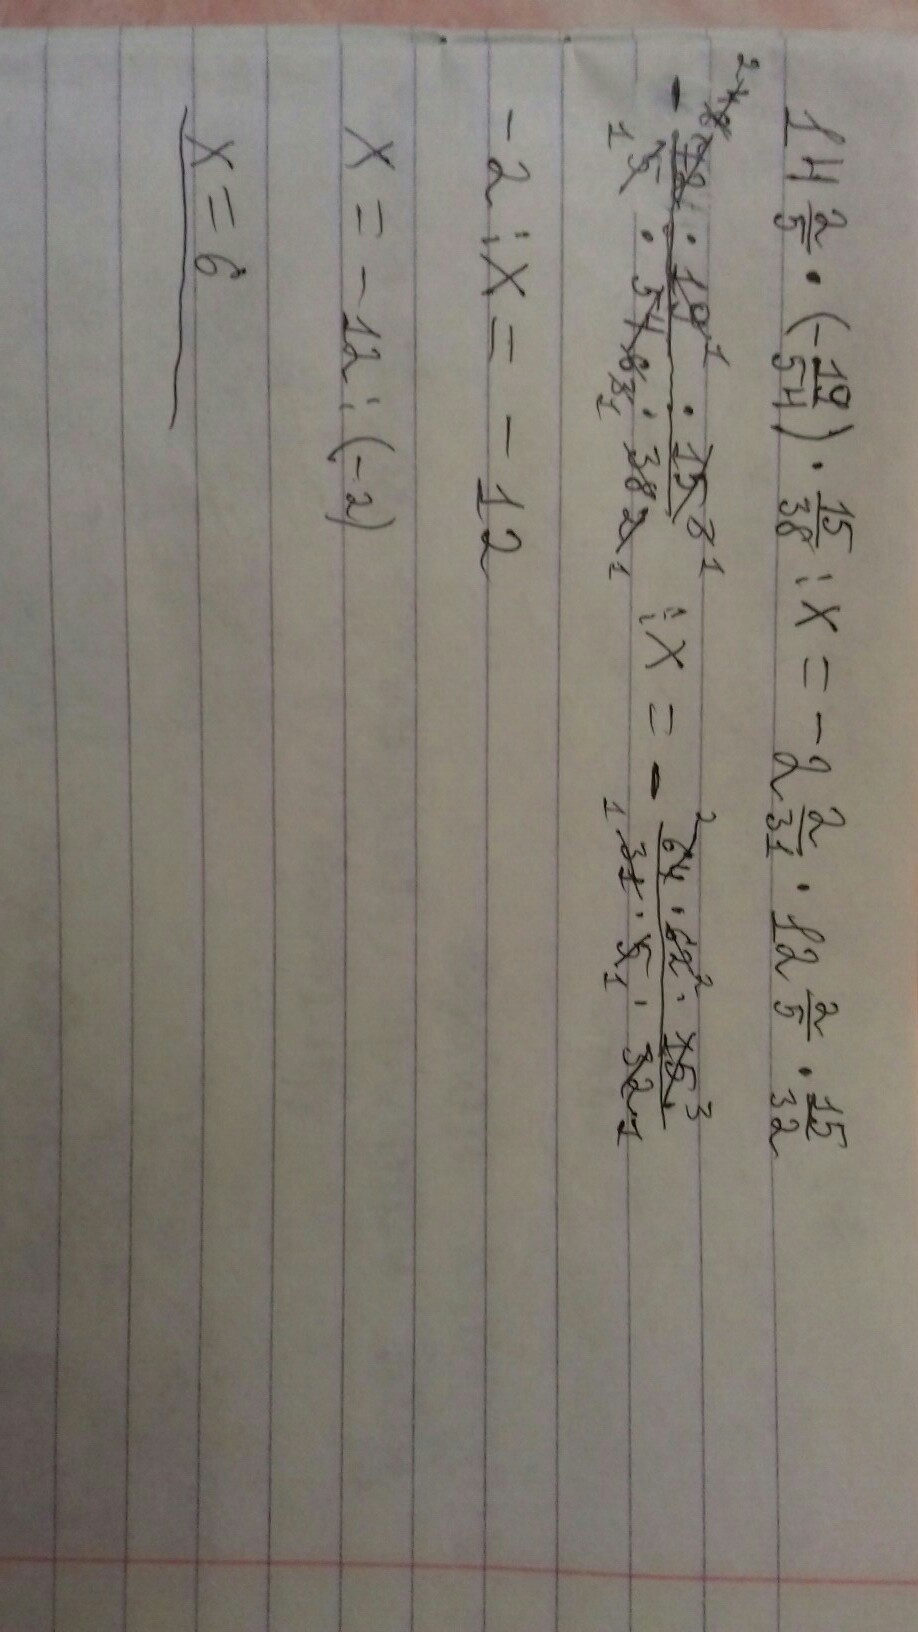 14 2/5 · (-19/54) · 15/38 : x = -2 2/31 · 12 2/5 · 15/32
- 72 · 19 · 15 / 5 · 54 · 38 : x = - 64 · 62 · 15 / 31 · 5 · 32
-2 : x = -12
x = -12 : (-2)
x = 6